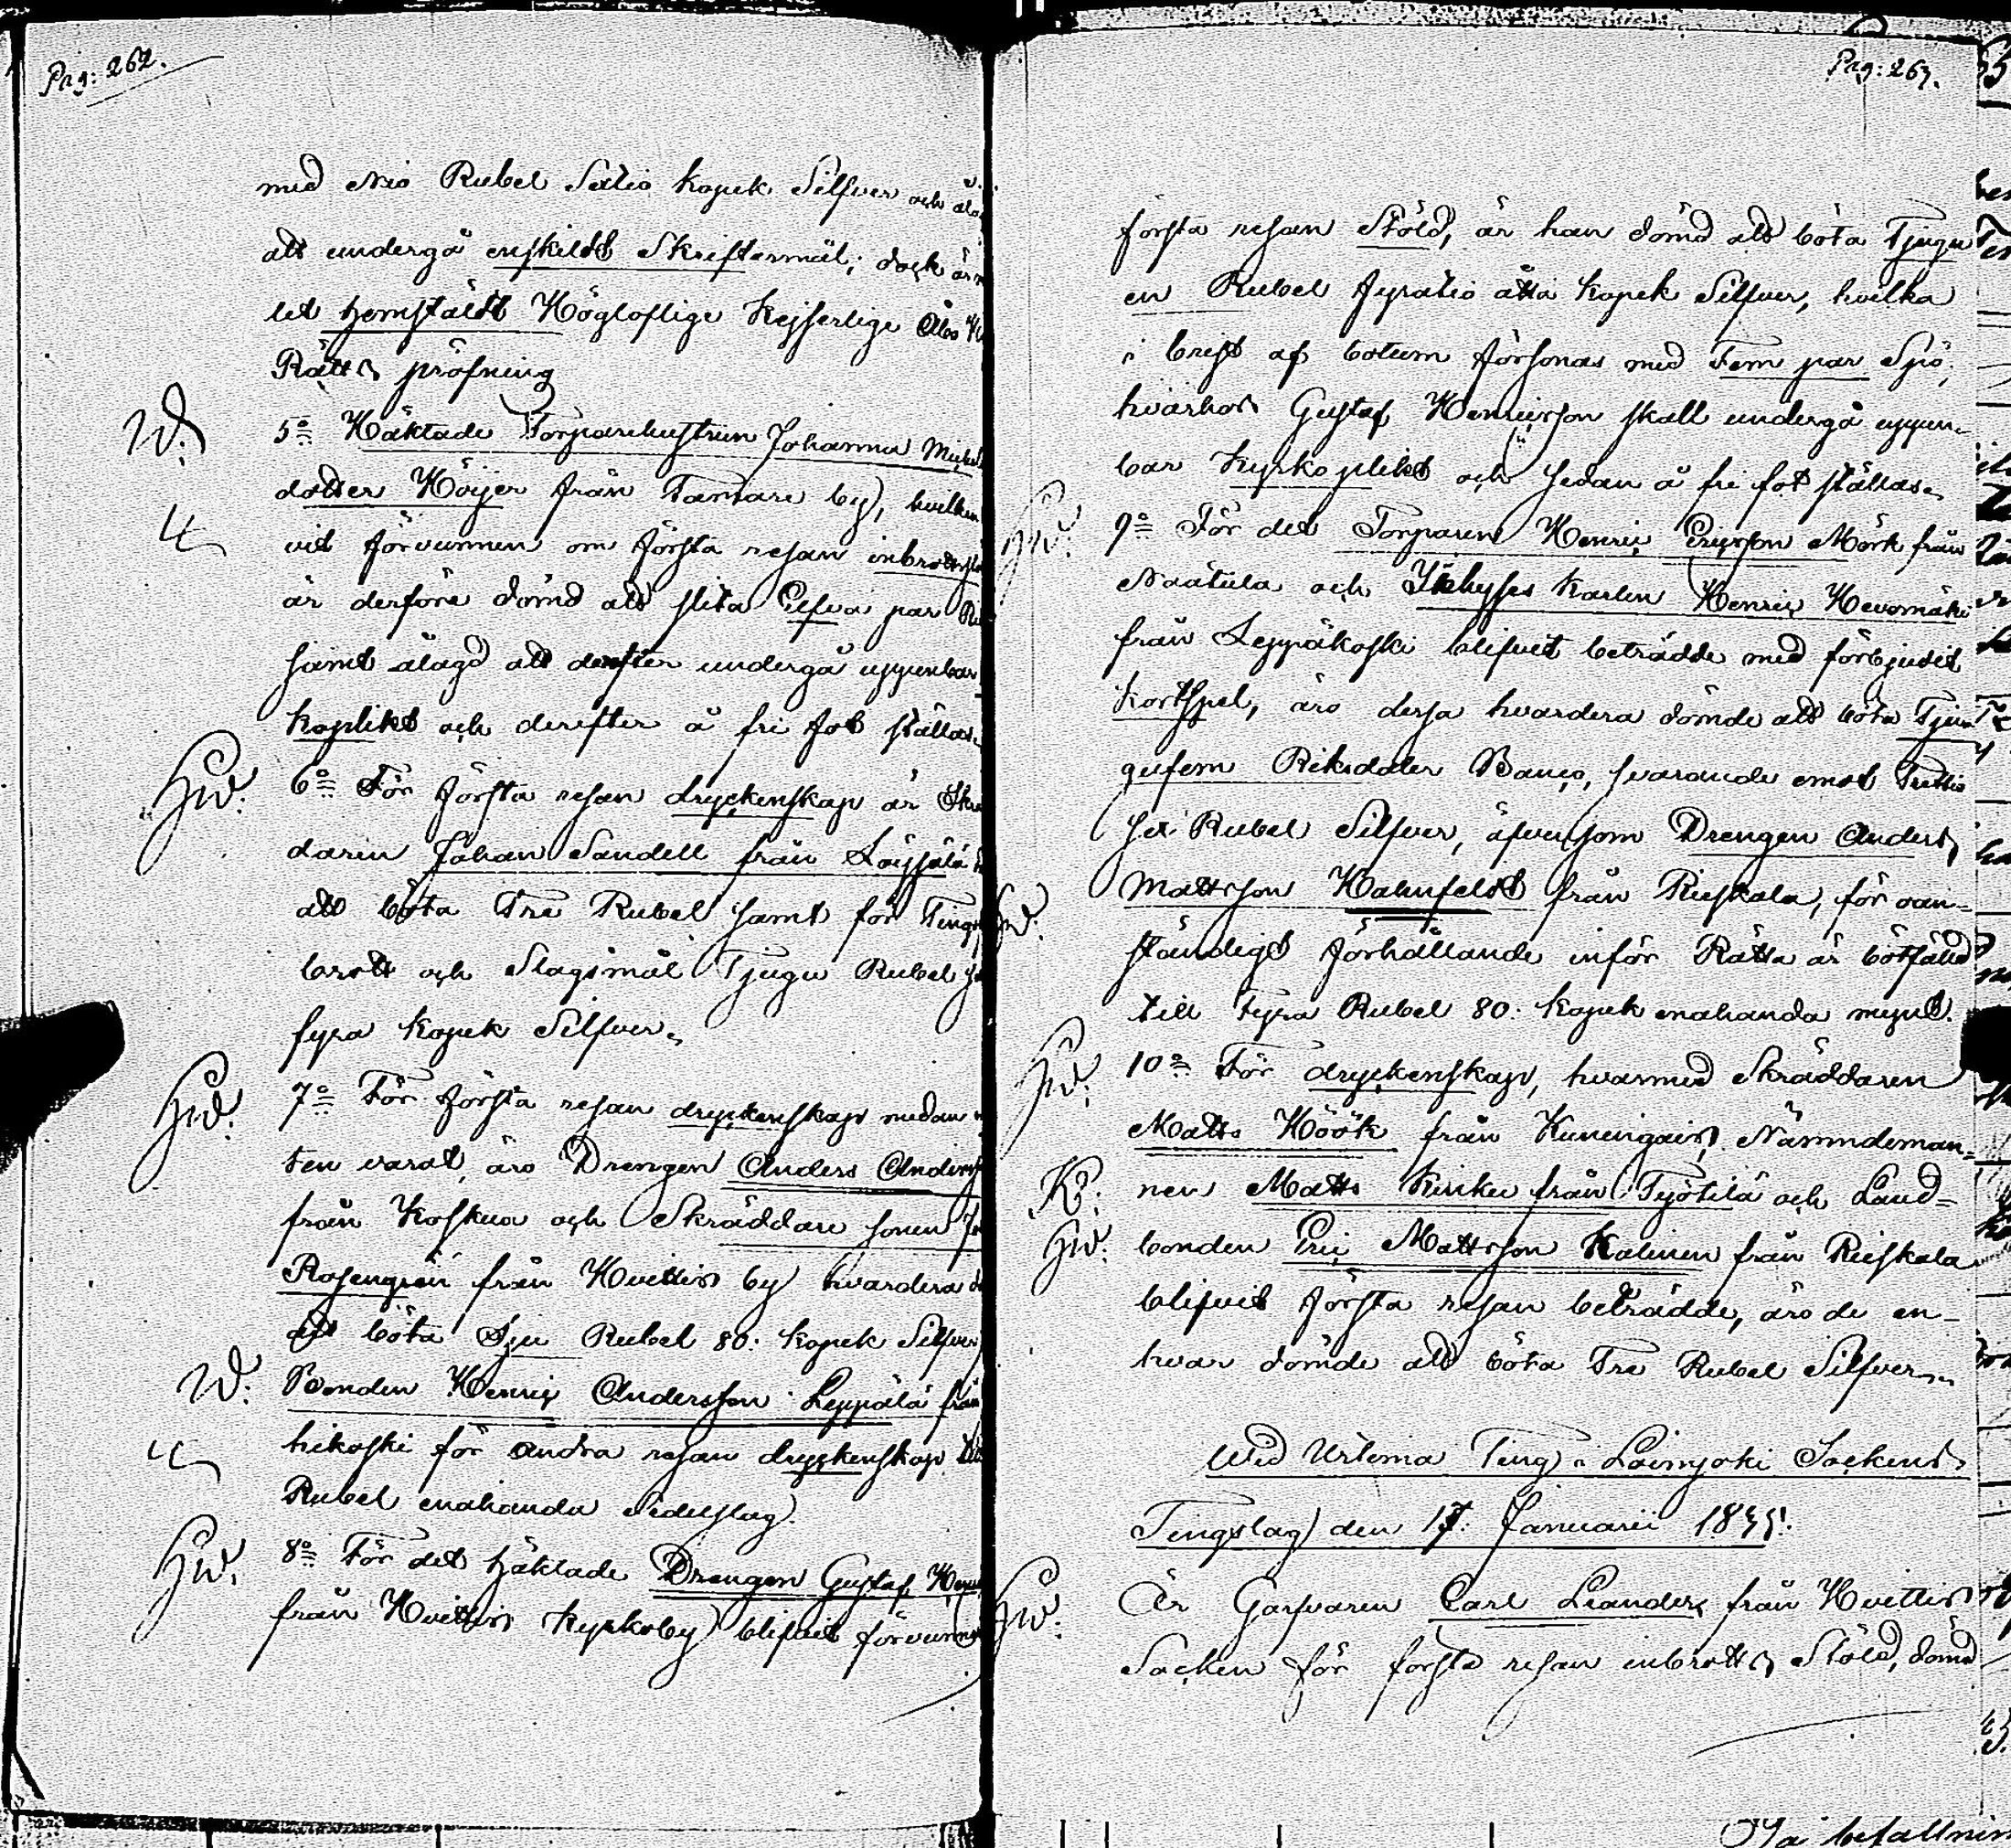 Pag: 262.
med Nio Rubel Sextio kopek Silfver och
att undergå enskildt Skriftermål; dock
let hemstäldt Högloflige Kejserlige Åbo
Rätts pröfning
W. 5:o Häktade Torparehustrun Johanna
dotter Höijer från Tamare by, hvilken
vit förvunnen om första resan
är derföre dömd att slita Elfva par
samt ålagd att derefter undergå uppenbar
koplikt och derefter å fri fot ställas.
Hw. 6:o För första resan dryckenskap är
daren Johan Sandell från
att böta Tre Rubel samt för
brott och Slagsmål Tjugu Rubel
fyra kopek Silfver.
Hw. 7:o För första resan dryckenskap medan
ten varat, äro Drengen Anders
från Koskua och Skräddare sonen
Rosengrén från Hvittis by hvardera
att böta Sju Rubel 80: kopek Silfver
W. Bonden Henric Andersson Leppälä från
hikoski för andra resan dryckenskap
Rubel enahanda Sedelslag.
Hw. 8:o För det häktade Drengen Gustaf
från Hvittis Kyrkoby blifvit
Pag: 263.
första resan Stöld, är han dömd att böta Tjugu
en Rubel fyratio åtta kopek Silfver, hvilka
i brist af botum försonas med Fem par Spö;
hvarhos Gustaf Henricsson skall undergå uppen-
bar kyrkoplikt och sedan å fri fot ställas.
Hw. 9:o För det Torparen Henric Ericsson Mörk från
och Karlen Henric Hevomäki
från Leppäkoski blifvit beträdde med förbjudit
kortspel, äro dessa hvardera dömde att böta Tju-
gufem Riksdaler Banco, svarande emot Trettio
sex Rubel Silfver, äfvensom Drengen Anders
Hw. Mattsson från Rieskala, för oan-
ständigt förhållande inför Rätta är bötfäld
till Fyra Rubel 80: kopek enahanda mynt.
Hw. 10:o För dryckenskap, hvarmed Skräddaren
Matts Höök från Kuningais, Nämndeman-
K. nen Matts från Työtilä och Land-
Hw. bonden Eric Mattsson Kalinen från Rieskala
blifvit första resan beträdde, äro de en-
hvar dömde att böta Tre Rubel Silfver.
Wid Urtima Ting i Loimjoki Sockens
Tingslag den 17: Januarii 1855.
Hw. Är Garfvaren Carl Leander från Hvittis
Socken för första resan inbrotts Stöld, dömd